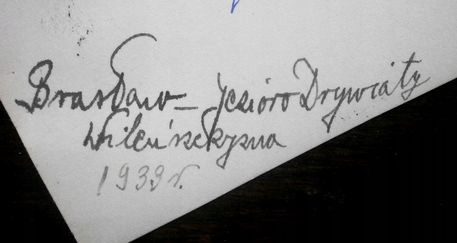 Brasław – Jezioro Drywiaty
Wileńszczyzna
1933 r.